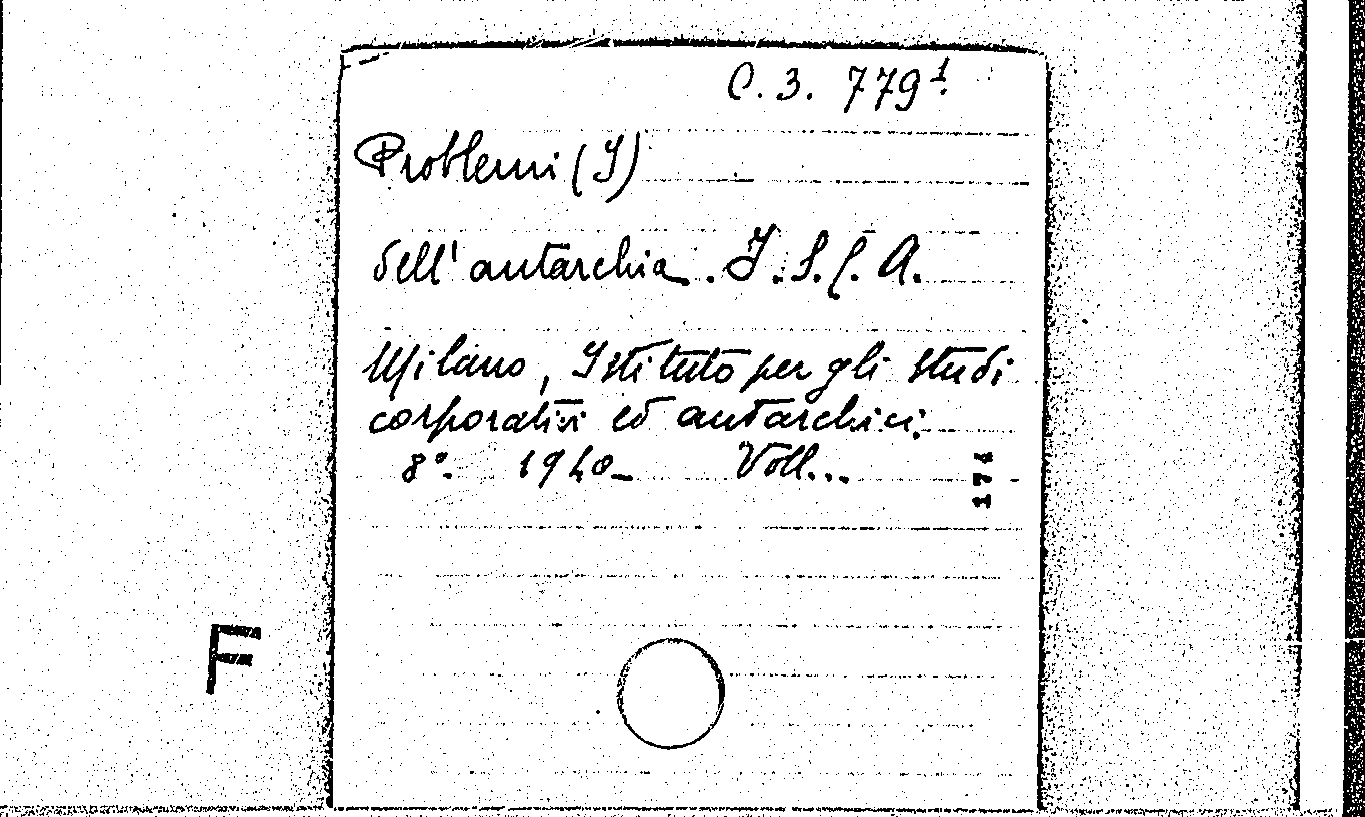 C. 3. 779¹.
Problemi (I)
dell' autarchia. I. S. C. A.
Milano, Istituto per gli studi
corporativi ed autarchici.
8°. 1940_ Voll...
174
F